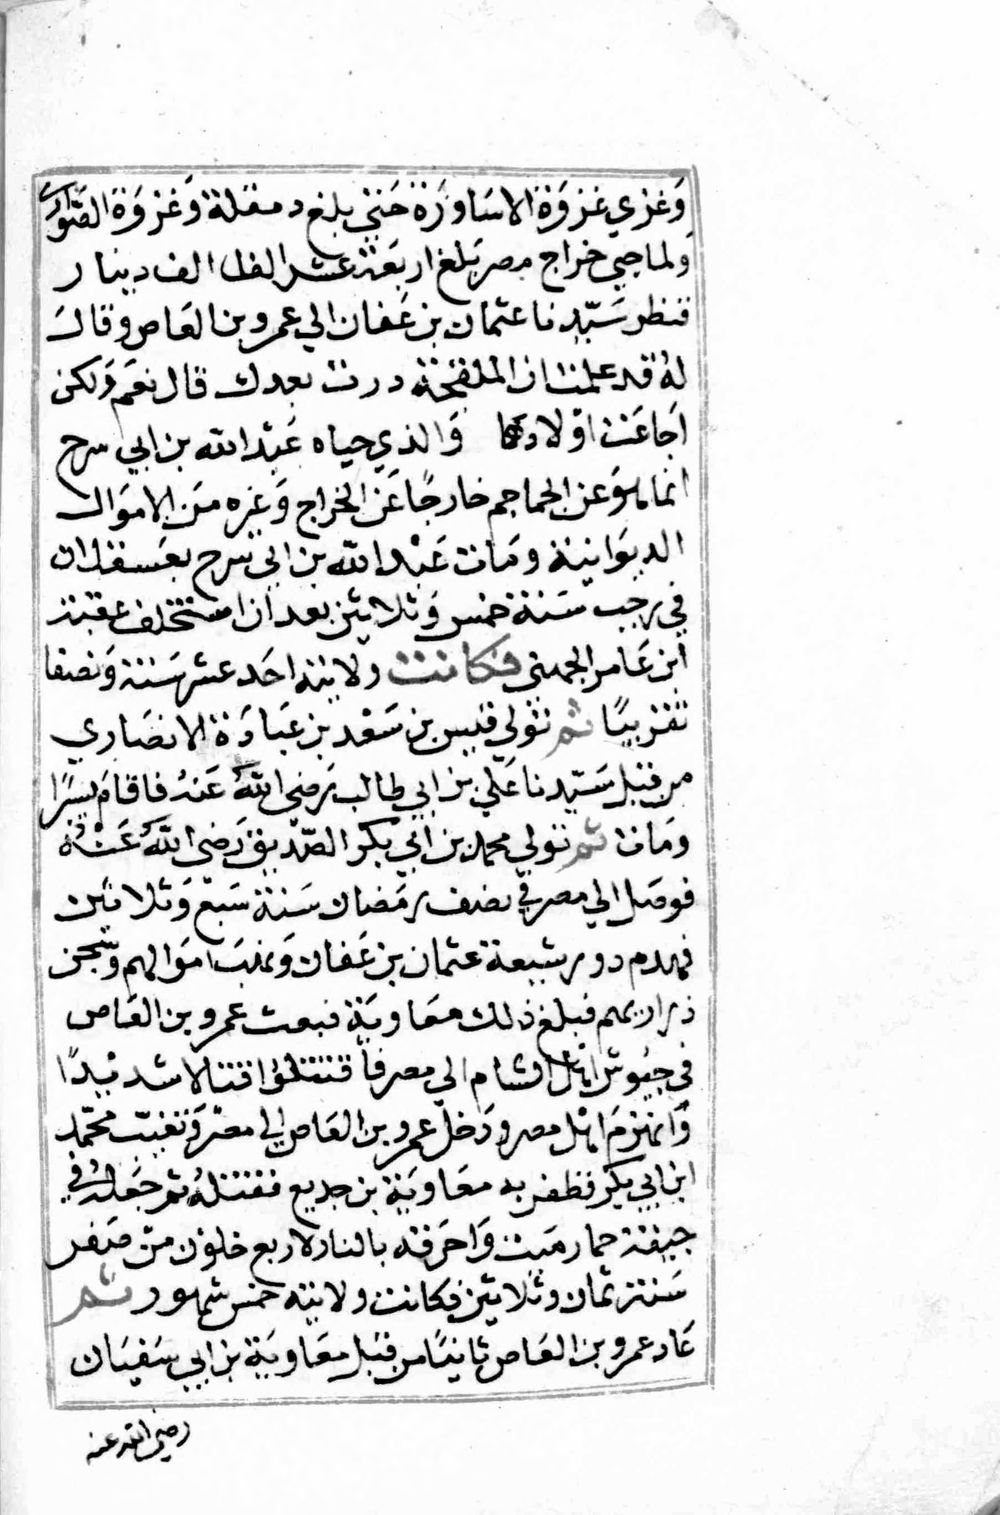 وَغزي غزوَة الاسَاورَة حَتي بلغ دمقلة وَغزوَة الصَّواري
وَلما جبي خراج مصر بَلغ اربعَة عشر الف الف دينار
فنظر سَيّدنا عثمان بن عَفان الي عمرو بن العَاص وقالَ
لهُ قد علمت ان الملقحة درت بعدك قال نعَم وَلكن
اجَاعَت اوْلادهَا وَالذي جباه عَبْد الله بن ابي سرح
انما هوَ عن الجماجم خارجًا عَن الخراج وَغيره من الامَوَال
الديوَانية ومَات عَبْد الله بن ابي سَرح بعَسقلان
في رجب سَنة خمس وَثلاثين بعد ان استخلف عقبة
ابن عَامر الجهني فكانت ولايته احَد عشر سَنة وَنصفا
تقريبًا ثم تولي قيس بن سَعْد بن عبَادَة الانصَاري
من قبل سَيّدنا عَلي بن ابي طالب رَضي اللهُ عَنهُ فاقامَ يسيرًا
ومَات ثم تولي محمد بن ابي بكر الصّديق رَضي اللهُ عَنْهُ
فوصَل الي مصر في نصف رمَضان سَنة سَبْع وَثلاثين
فهدم دور شيعة عثمان بن عَفان وَنهبَ امَوَالهم وَسَجن
ذراريهم فبلغ ذلك معَاويَة فبعث عمرو بن العَاص
في جيُوش اهْل الشام الي مصر فاقتتلوُا قتالا شديْدًا
وَانهزمَ اهْل مصر ودَخل عمرو بن العَاص الي مصْر وَتغيّب محَمّد
ابن ابي بكر فظفر به معَاويَة بن حديج فقتلهُ ثم جَعَلهُ في
جيفة حمار مَيت وَاحَرقه بالنار لاربع خلوْن منْ صَفر
سَنة ثمان وثلاثين فكانت ولايته خمس شهور ثم
عَاد عمرو بن العَاص ثانيًا من قبَل معَاويَة بن ابي سَفيَان
رضي الله عنه